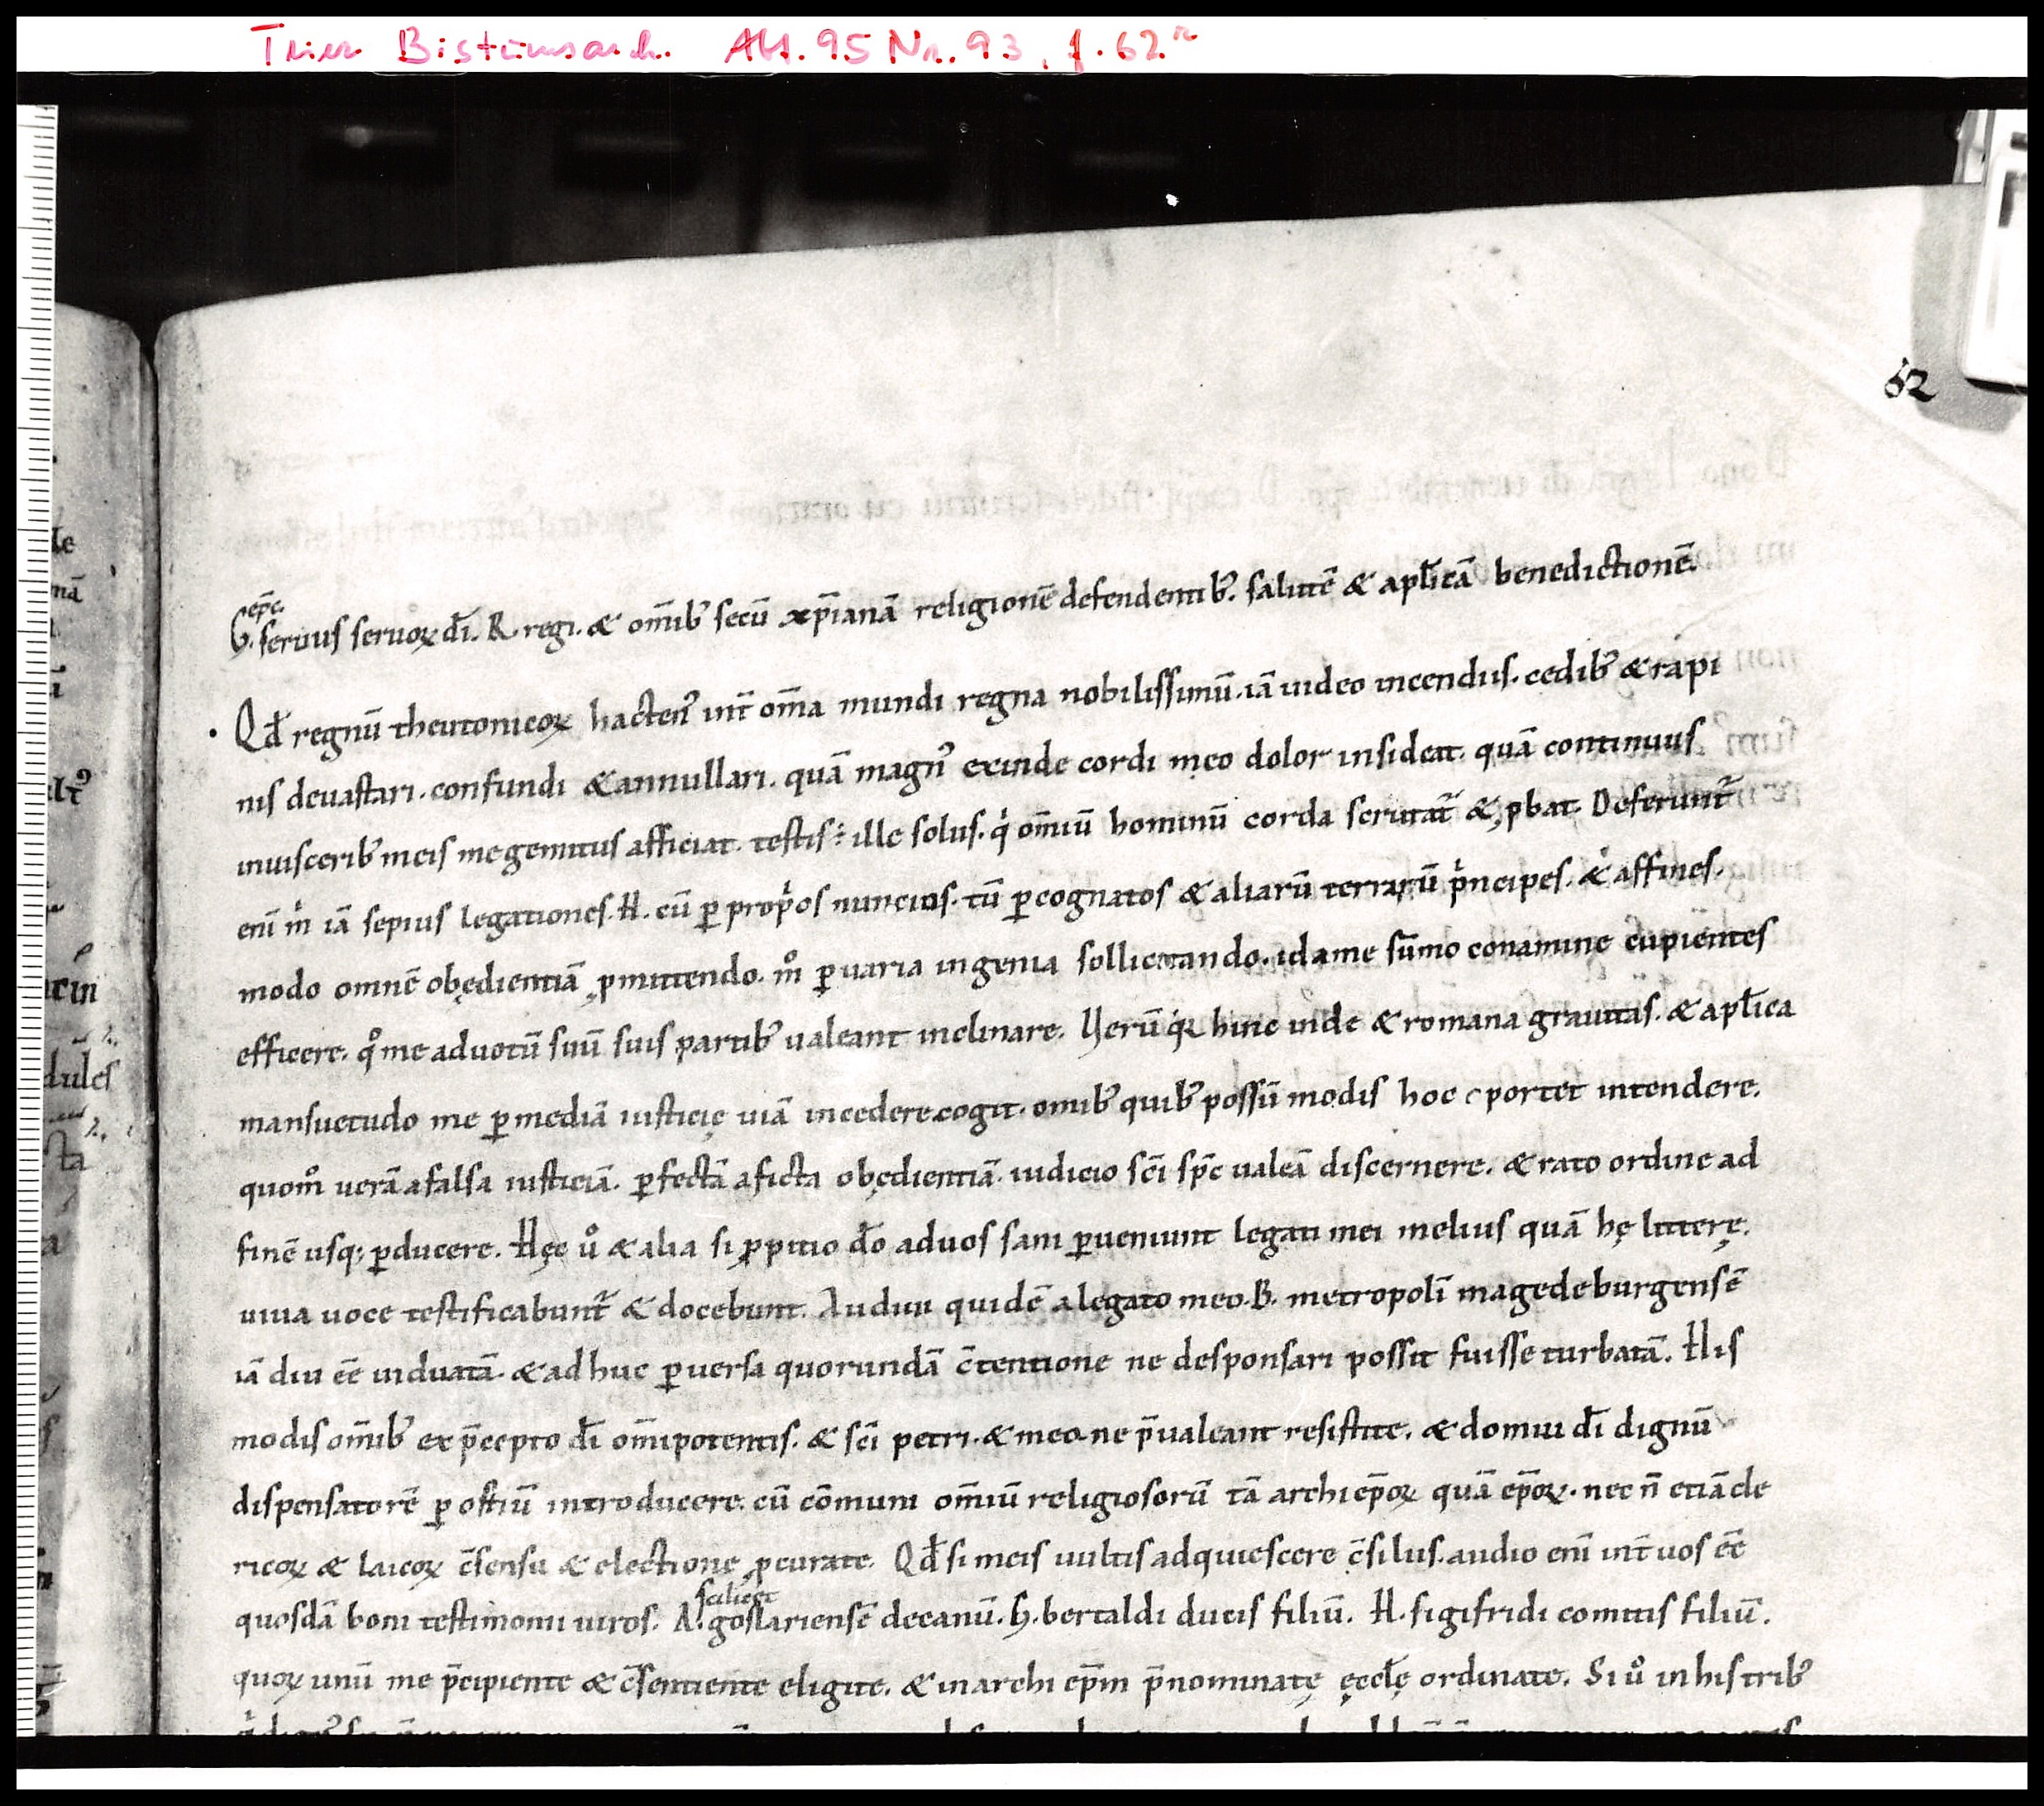 Trier Bistumsarch. Abt. 95 Nr. 93, f. 62r
62
epc.
G. seruus seruoꝝ dī. R. regi. & om̄ibꝰ secū xp̄ianā religionē defendentibꝰ. salutē & apl̄icā benedictionē.
Qd̄ regnū theutonicoꝝ hactenꝰ int̄ om̄a mundi regna nobilissimū. iā uideo incendiis. cedibꝰ & rapi
nis deuastari. confundi & annullari. quā magnꝰ exinde cordi meo dolor insideat. quā continuus
inuisceribꝰ meis me gemitus afficiat. testis ÷ ille solus. qͥ om̄iū hominū corda scrutat̄ & ꝓbat. Deferunt̄
enī mͥ iā sepius legationes. H. cū ꝑ propͥos nuncios. tū ꝑ cognatos & aliarū terrarū pͥncipes. & affines.
modo omnē obędientiā ꝓmittendo. mͦ ꝑ uaria ingenia sollicitando. id a me sūmo conamine cupientes
efficere. qͦ me aduotū suū suis partibꝰ ualeant inclinare. Verū qͥꝝ hinc inde & romana grauitas. & apl̄ica
mansuetudo me ꝑ mediā iusticię uiā incedere cogit. omibꝰ quibꝰ possū modis hoc oportet intendere.
quomͦ uerā a falsa iusticiā. ꝑfectā a ficta obędientiā. iudicio sc̄i sp̄c ualeā discernere. & rato ordine ad
finē usq; ꝑducere. Hęc uͦ & alia si ꝓpitio dō aduos sani ꝑueniunt legati mei melius quā hę litterę.
uiua uoce testificabunt̄ & docebunt. Audiui quidē a legato meo B. metropolī magedeburgensē
iā diu eē uiduatā. & adhuc ꝑuersa quorundā c̄tentione ne desponsari possit fuisse turbatā. His
modis om̄ibꝰ ex p̄cepto dī om̄ipotentis. & sc̄i petri. & meo. ne p̄ualeant resistite. & domui dī dignū
dispensatorē ꝑ ostiū introducere. cū cōmuni om̄iū religiosorū tā archiep̄oꝝ quā ep̄oꝝ. nec n̄ etiā cle
ricoꝝ & laicoꝝ c̄sensu & electione ꝓcurate. Qd̄ si meis uultis adquiescere c̄siliis. audio enī int̄ uos eē
scilicet
quosdā boni testimonii uiros. A. goslariensē decanū. G. bertaldi ducis filiū. H. sigifridi comitis filiū.
quoꝝ unū me p̄cipiente & c̄sentiente eligite. & in archi ep̄m p̄nominatę ęccl̄ę ordinate. Si uͦ in his tribꝰ